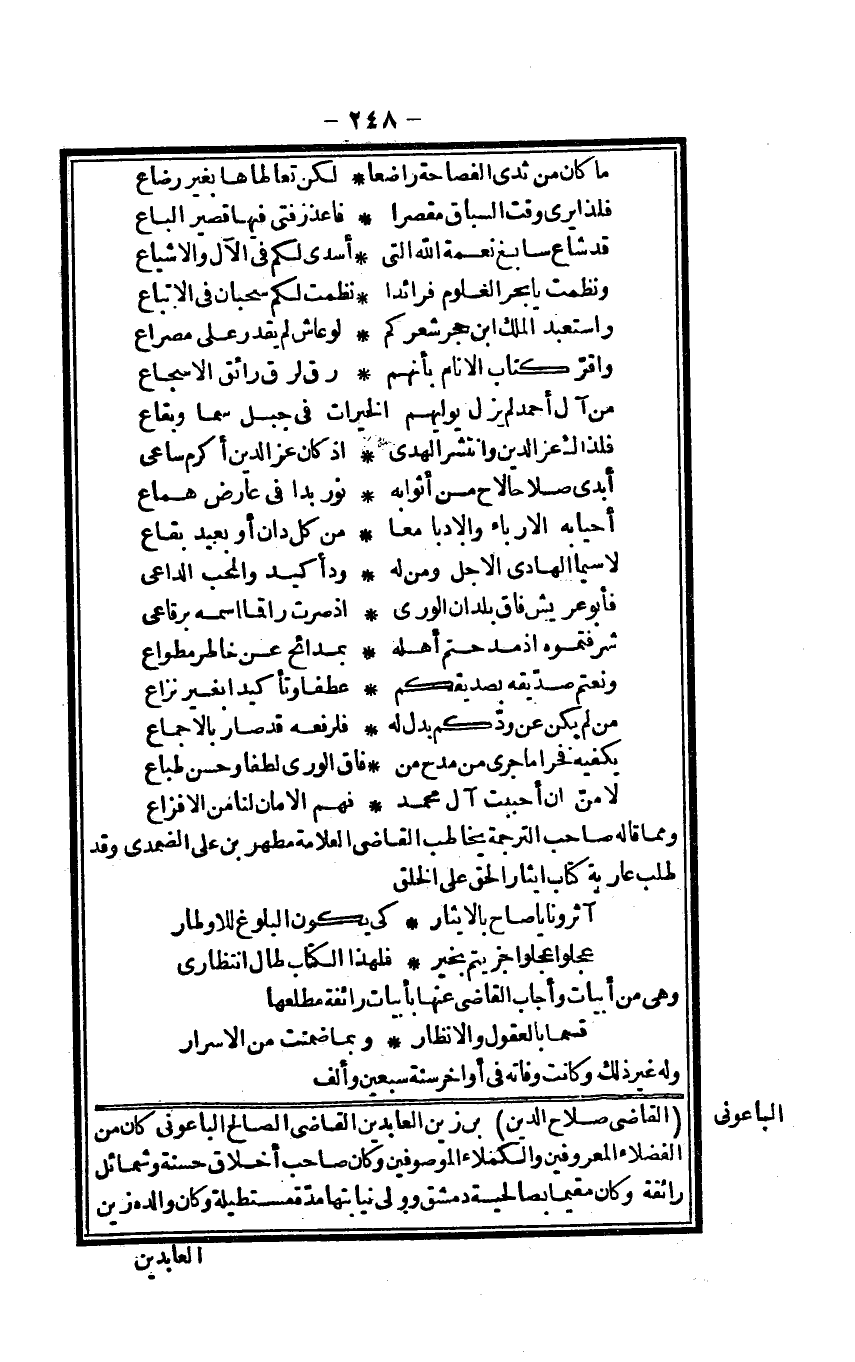 - ٢٤٨ -
ما كان من ثدى الفصاحة راضعا * لكن تعالماها بغير رضاع
فلذا يرى وقت السباق مقصرا * فاعذر فتى فيها قصير الباع
قد شاع سابغ نعمة الله التى * أسدى لكم فى الآل والاشياع
ونظمت يا بحر العلوم فرائدا * نظمت لكم سحبان فى الاتباع
واستعبد الملك ابن حجر شعركم * لو عاش لم يقدر على مصراع
واقرّ كتاب الانام بأنهم * رق لرق رائق الاسجاع
من آل أحمد لم يزل يوليهم الخيرات فى جبل سما وبقاع
فلذاك عز الدين وانتشر الهدى * اذ كان عز الدين أكرم ساعى
أبدى صلاحا لاح من أثوابه * نور بدا فى عارض هماع
أحيا به الارباء والادبا معا * من كل دان أو بعيد بقاع
لا سيما الهادى الاجل ومن له * ود أكيد والمحب الداعى
فأبو عريش فاق بلدان الورى * اذ صرت راقما اسمه برقاعى
شرفتموه اذ مدحتم أهله * بمدائح عن خاطر مطواع
ونعتم صدّيقه بصديقكم * عطفا وتأكيدا بغير نزاع
من لم يكن عن ودّكم بدل له * فلرفعه قد صار بالاجماع
يكفيه فخرا ما جرى من مدح من * فاق الورى لطفا وحسن طباع
لا منّ ان أحببت آل محمد * فهم الامان لنا من الافزاع
ومما قاله صاحب الترجمة يخاطب القاضى العلامة مطهر بن على الضمدى وقد
طلب عارية كتاب ايثار الحق على الخلق
آثرونا يا صاح بالايثار * كى يكون البلوغ للاوطار
عجلوا عجلوا جزيتم بخير * فلهذا الكتاب طال انتظارى
وهى من أبيات وأجاب القاضى عنها بأبيات رائقة مطلعها
قسما بالعقول والانظار * وبما ضمنت من الاسرار
وله غير ذلك وكانت وفاته فى أواخر سنة سبعين وألف
الباعونى
(القاضى صلاح الدين) بن زين العابدين القاضى الصالح الباعونى كان من
الفضلاء المعروفين والكملاء الموصوفين وكان صاحب أخلاق حسنة وشمائل
رائقة وكان مقيما بصالحية دمشق وولى نيابتها مدّة مستطيلة وكان والده زين
العابدين